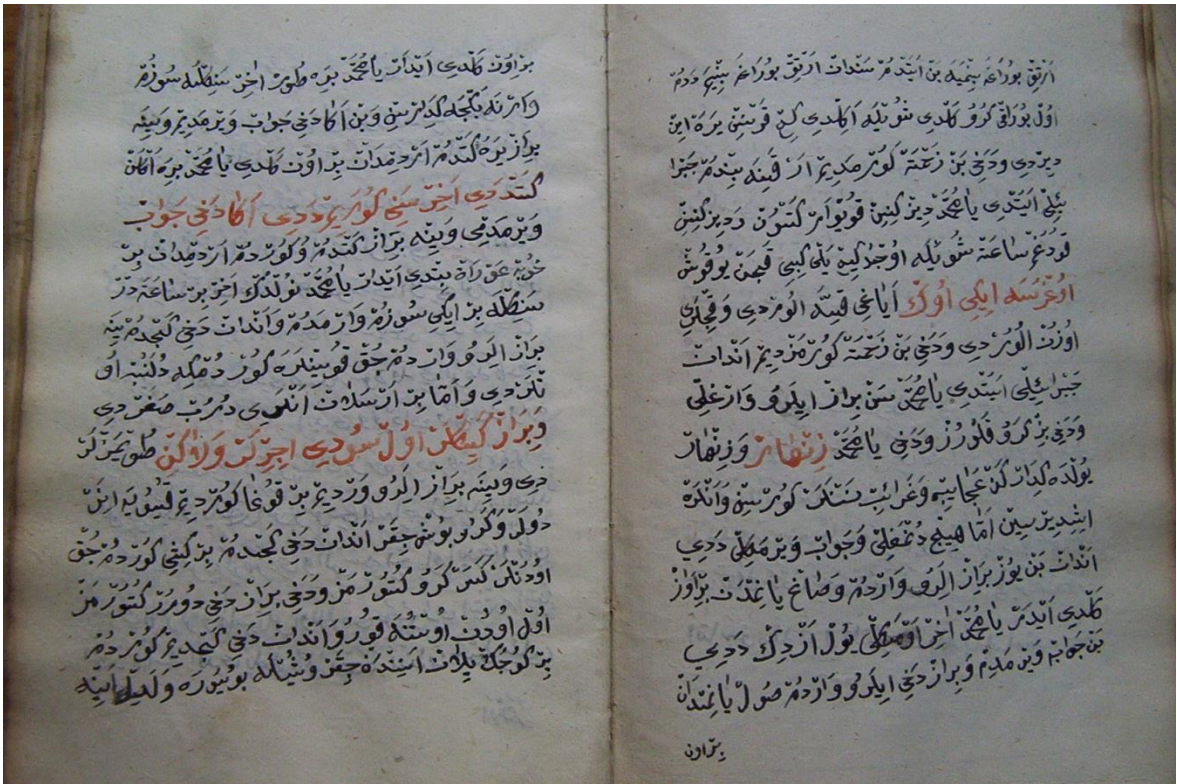 ارتق بوراغه بنميه بن ايتدم سندات ارتق بوراغه بنيم ددم
اول بوراقی كرو كلدی شويله اكلدی كج قوينن يره اين
ديردی ودخی بن زحمة كورمديم ار قينه بندم جبرا
ئيل ايتدی يا محمد ديزكنين قويوار كتسون دديزكنين
قودغم ساعة شويله اوجدكيه يلی كيبی قجن يوقوش
اوغرسه ايكی اوك اياغی قيسه الوردی وقجلری
اوزن الوردی ودخی بن زحمة كورمزديم اندات
جبرائيل ايتدی يا محمد سن براز ايلرو وارغلی
ودخی بز كرو قلوروز ودخی يا محمد زنهار وزنهار
يولده كلدات كن عجايبه وغرائب نسنلر كوررسن وانلره
ايشيديرسين اما هيج دتمغلی وجواب ويرمكلی ددی
اندات بن يوز براز الرو واردم وصاغ يانمدن براواز
كلدی ايدر يا محمد يول ازدك ددی
بن جوابه ويرمدم وبراز دخی ايلرو واردم صول يانمدان
براون
براون كلدی ايدر يا محمد بره طور اخر سنكله سوزم
وار نه كجه كلديرسن وبن اكا دخی جواب ويرمديم وينه
براز يره كتدم اردمدات بر اون كلدی يا محمد بره
كتددی اخر سنی كوريم ددی اكا دخی جواب
ويرمدمی وينه براز كتدم وكوردم اردمدات بر
خوب عورة يتدی ايدر يا محمد نولدك اخر بر ساعة در
سنكله بر ايكی سوزم وارمدم واندات دخی كجدم ينه
براز الرو واردم جق قوينلره كوردم كه
نلردی واما بر ارسلات انلری دروب صغردی
وبراز كيكلن اول سودی اجرلر ولاكن طويمزلر
دی وينه براز الرو وارديم بر قوغا كورديم قيويه اينر
دولر وكرو بوش جقر اندات دخی كجدم بر كيشی كوردم جق
اودنلر كسر كرو كتورمز ودخی براز دخی دورر كتورمز
اول اودن اوستنه قورو واندات دخی كتدم كوردم
بر كوجك ييلات اينده جقر ودنياله بويور ولديله اينه